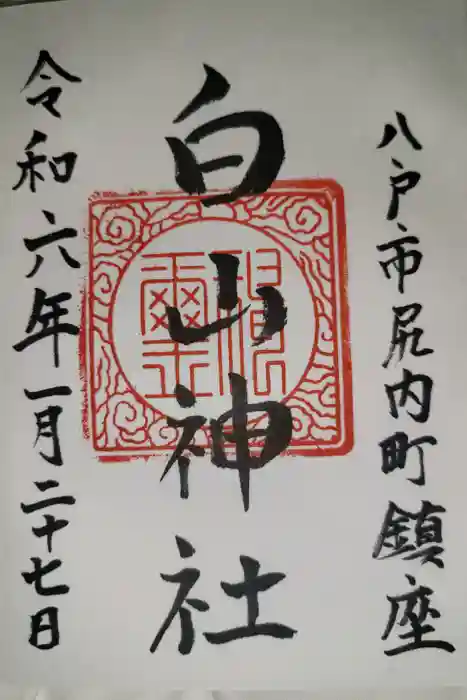 八戸市尻内町鎮座
白山神社
令和六年一月二十七日